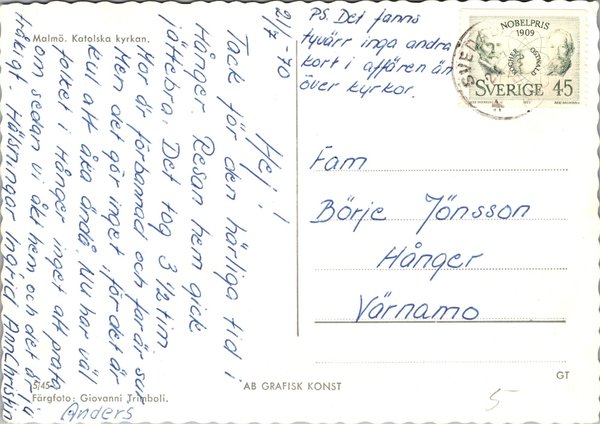 Malmö. Katolska kyrkan.
21/7-70
Hej!
Tack för den härliga tid i
Hånger. Resan hem gick
jättebra. Det tog 3 1/2 tim.
Mor är förbannad och far är sur
Men det gör inget, för det är
kul att åka ändå. Nu har väl
folket i Hånger inget att prata
om sedan vi åkt hem och det är ju
tråkigt Hälsningar Ingrid AnnChristin
Anders
PS. Det fanns
tyvärr inga andra
kort i affären än
över kyrkor.
NOBELPRIS
1909
SVERIGE 45
Fam
Börje Jönsson
Hånger
Värnamo
5/45
Färgfoto: Giovanni Trimboli.
AB GRAFISK KONST
GT
5